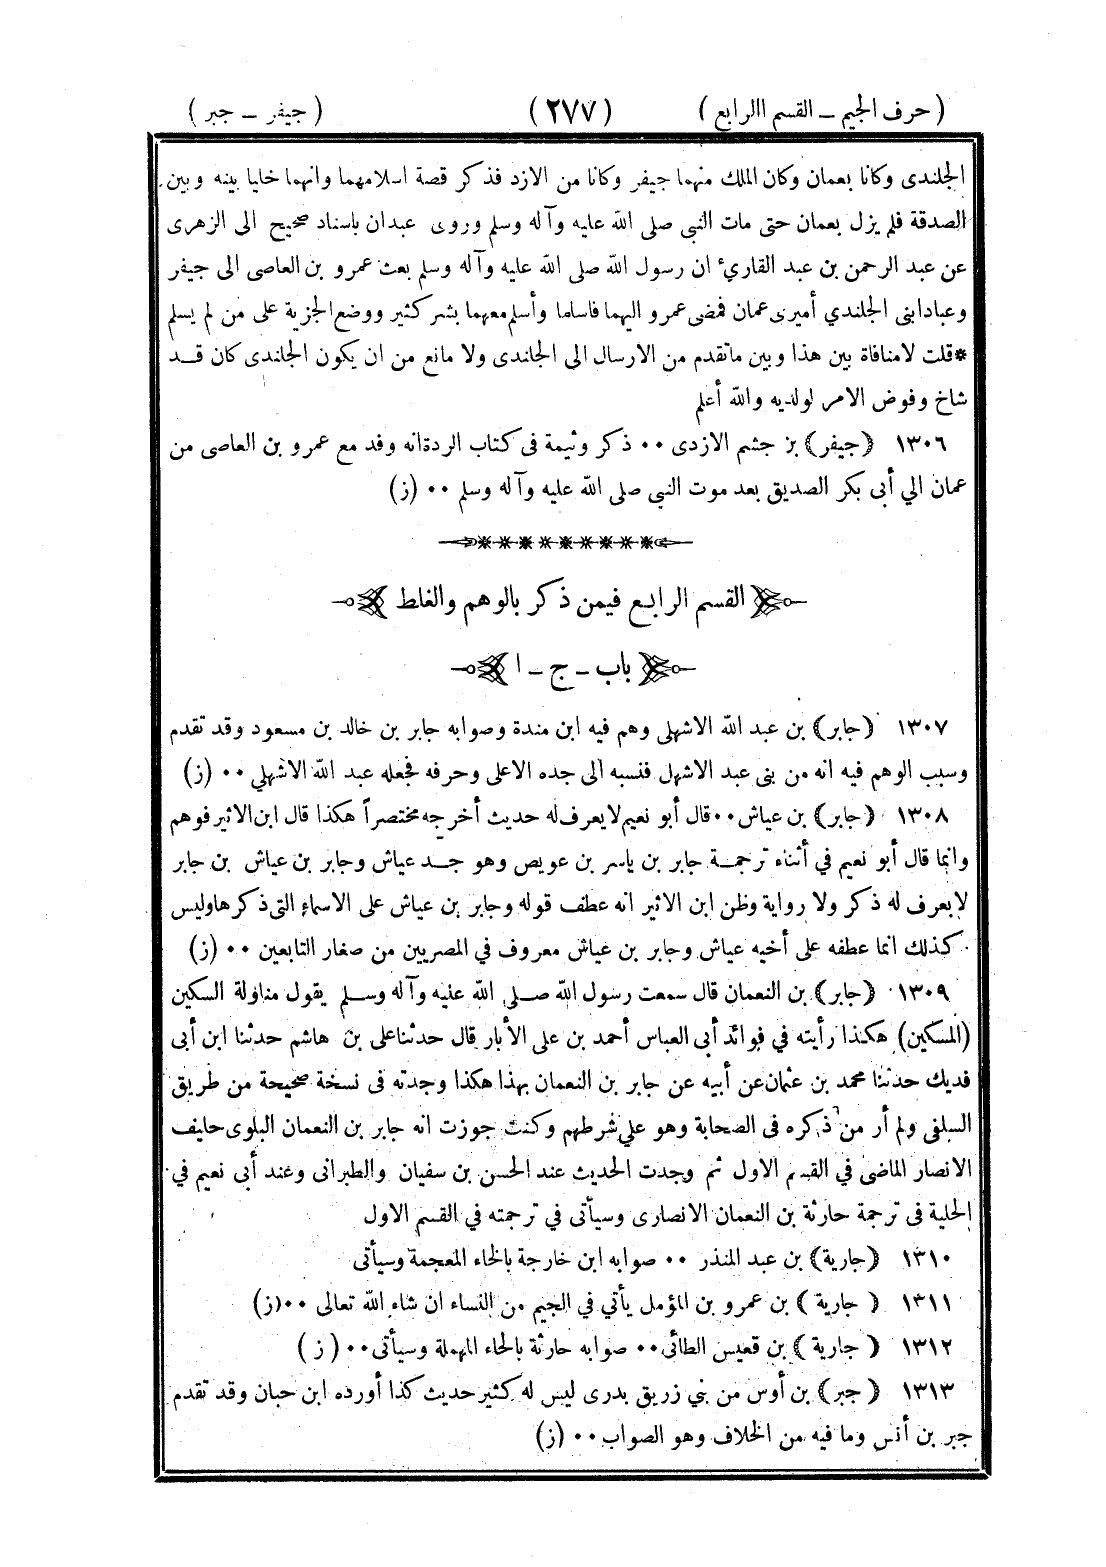 ( حرف الجيم – القسم االرابع ) (٢٧٧) ( جيفر – جبر )
الجلندى وكانا بعمان وكان الملك منهما جيفر وكانا من الازد فذكر قصة اسلامهما وانهما خليا بينه وبين
الصدقة فلم يزل بعمان حتى مات النبي صلى الله عليه وآله وسلم وروى عبدان باسناد صحيح الى الزهرى
عن عبد الرحمن بن عبد القاريء ان رسول الله صلى الله عليه وآله وسلم بعث عمرو بن العاصى الى جيفر
وعبادابنى الجلندي أميرى عمان فمضى عمرو اليهما فاسلما وأسلم معهما بشر كثير ووضع الجزية على من لم يسلم
*قلت لامنافاة بين هذا وبين ماتقدم من الارسال الى الجلندى ولا مانع من ان يكون الجلندى كان قد
شاخ وفوض الامر لولديه والله أعلم
١٣٠٦ (جيفر) بن جشم الازدى ٠٠ ذكر وثيمة فى كتاب الردةانه وفد مع عمرو بن العاصى من
عمان الي أبى بكر الصديق بعد موت النبي صلى الله عليه وآله وسلم ٠٠ (ز)
القسم الرابع فيمن ذكر بالوهم والغلط
باب – ج – ا
١٣٠٧ (جابر) بن عبد الله الاشهلى وهم فيه ابن مندة وصوابه جابر بن خالد بن مسعود وقد تقدم
وسبب الوهم فيه انه من بنى عبد الاشهل فنسبه الى جده الاعلى وحرفه فجعله عبد الله الاشهلي ٠٠ (ز)
١٣٠٨ (جابر) بن عياش٠٠قال أبو نعيم لايعرف له حديث أخرجه مختصراً هكذا قال ابن الاثير فوهم
وانما قال أبو نعيم في أثناء ترجمة جابر بن ياسر بن عويص وهو جد عياش وجابر بن عياش بن جابر
لايعرف له ذكر ولا رواية وظن ابن الاثير انه عطف قوله وجابر بن عياش على الاسماء التى ذكرهاوليس
كذلك انما عطفه على أخيه عياش وجابر بن عياش معروف في المصريين من صغار التابعين ٠٠ (ز)
١٣٠٩ (جابر) بن النعمان قال سمعت رسول الله صلى الله عليه وآله وسلم يقول مناولة السكين
(المسكين) هكذا رأيته في فوائد أبى العباس أحمد بن على الأبار قال حدثناعلى بن هاشم حدثنا ابن أبى
فديك حدثنا محمد بن عثمان عن أبيه عن جابر بن النعمان بهذا هكذا وجدته فى نسخة صحيحة من طريق
السلفى ولم أر من ذكره فى الصحابة وهو على شرطهم وكنت جوزت انه جابر بن النعمان البلوى حليف
الانصار الماضى في القسم الاول ثم وجدت الحديث عند الحسن بن سفيان والطبرانى وعند أبى نعيم في
الحلية فى ترجمة حارثة بن النعمان الانصارى وسيأتى في ترجمته في القسم الاول
١٣١٠ (جارية) بن عبد المنذر ٠٠ صوابه ابن خارجة بالخاء المعجمة وسيأتى
١٣١١ ( جارية ) بن عمرو بن المؤمل يأتي في الجيم من النساء ان شاء الله تعالى ٠٠(ز)
١٣١٢ ( جارية ) بن قعيس الطائى٠٠ صوابه حارثة بالحاء المهملة وسيأتى٠٠ ( ز )
١٣١٣ ( جبر ) بن أوس من بني زريق بدرى ليس له كثير حديث كذا أورده ابن حبان وقد تقدم
جبر بن أنس وما فيه من الخلاف وهو الصواب ٠٠ (ز)